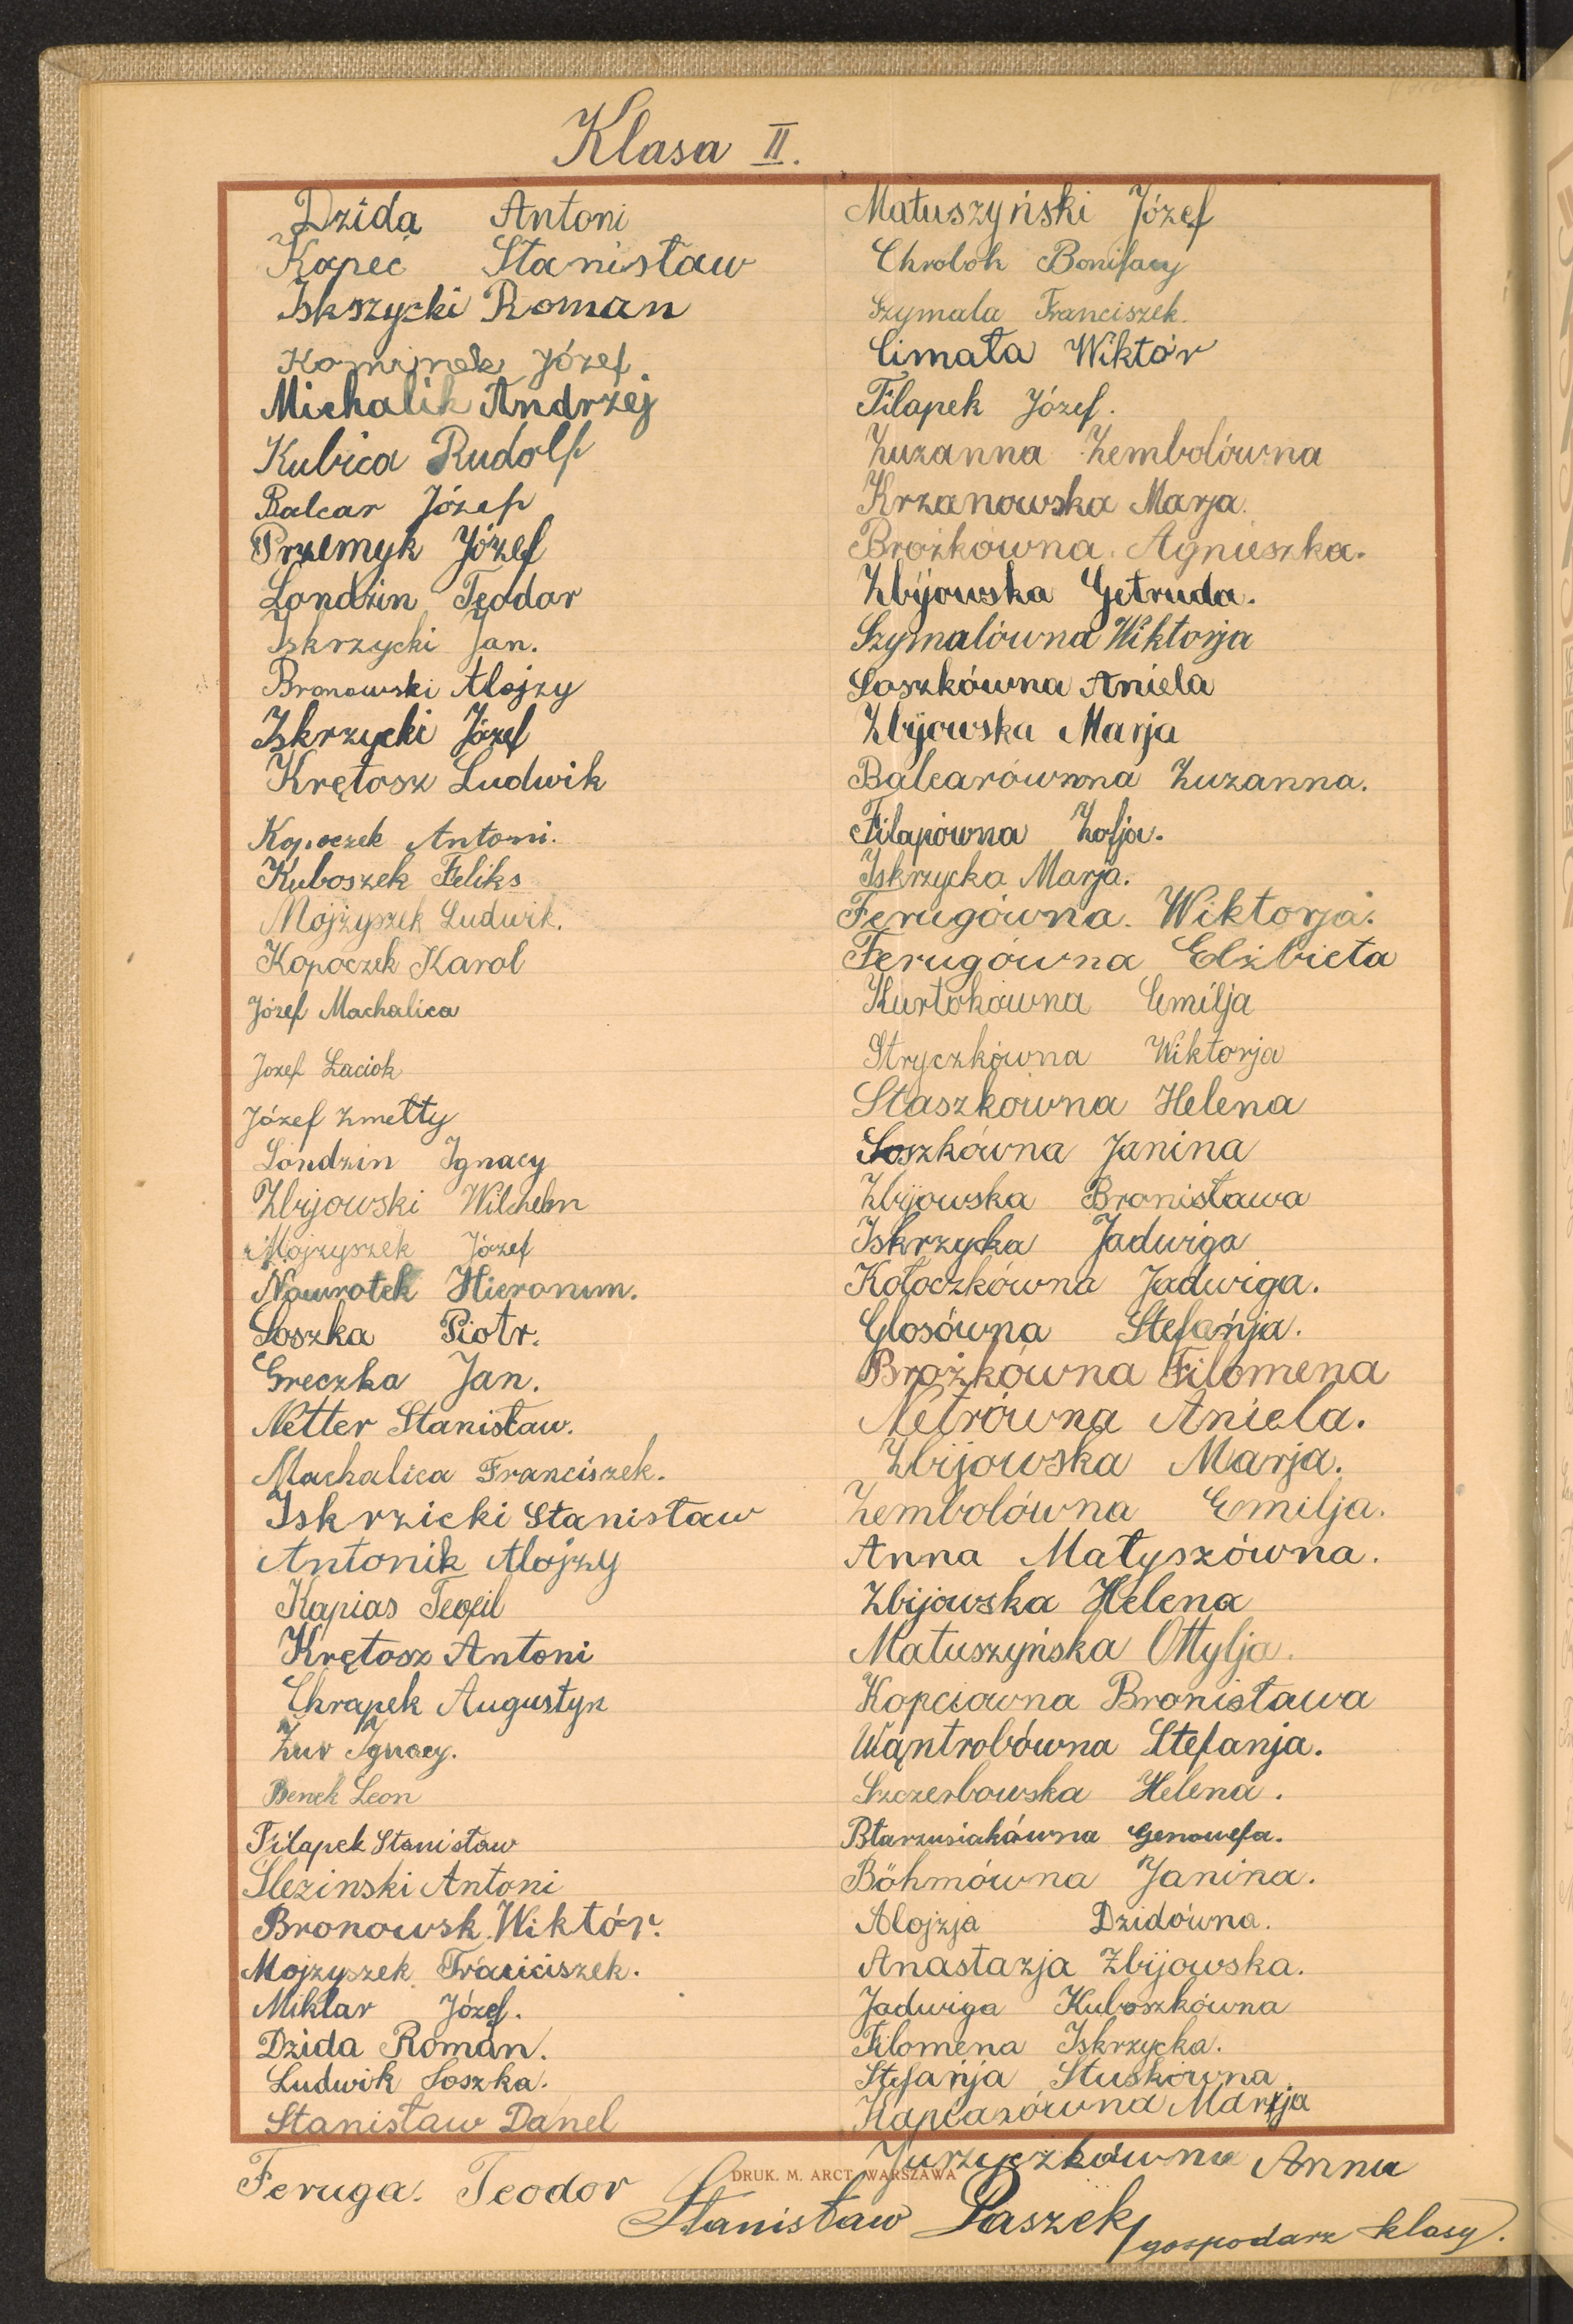 Klasa II.
Dzida Antoni
Kopeć Stanisław
Iskszycki Roman
Kominek Józef.
Michalik Andrzej
Kubica Rudolf
Balcar Józef
Przemyk Józef
Londzin Teodor
Iskrzycki Jan.
Bronowski Alojzy
Iskrzycki Józef
Krętosz Ludwik
Kopoczek Antoni.
Kuboszek Feliks
Mojżyszek Ludwik.
Kopoczek Karol
Józef Machalica
Jozef Laciok
Józef Zmełty
Londzin Ignacy
Zbijowski Wilchelm
Mojzyszek Józef
Nawrotek Hieronim.
Soszka Piotr.
Greczka Jan.
Netter Stanisław.
Machalica Franciszek.
Iskrzicki Stanisław
Antonik Alojzy
Kapias Teofil
Krętosz Antoni
Chrapek Augustyn
Żur Ignacy.
Benek Leon
Filapek Stanisław
Slezinski Antoni
Bronowsk Wiktór.
Mojzyszek Franciszek.
Miklar Józef.
Dzida Roman.
Ludwik Soszka.
Stanisław Danel
Feruga. Teodor
Matuszyński Józef
Chrobok Bonifacy
Szymala Franciszek.
Cimała Wiktór
Filapek Józef.
Zuzanna Zembolówna
Krzanowska Marja.
Brożkówna. Agnieszka.
Zbijowska Getruda.
Szymalówna Wiktorja
Soszkówna Aniela
Zbijowska Marja
Balcarówna Zuzanna.
Filapówna Zofja.
Iskrzycka Marja.
Ferugówna. Wiktorja.
Ferugówna Elżbieta
Kurtokówna Emilja
Stryczkówna Wiktorja
Staszkówna Helena
Soszkówna Janina
Zbijowska Bronisława
Iskrzycka Jadwiga
Kołoczkówna Jadwiga.
Glosówna Stefańja.
Brożkówna Filomena
Netrówna Aniela.
Zbijowska Marja.
Zembolówna Emilja.
Anna Matyszówna.
Zbijowska Helena
Matuszyńska Ottylja.
Kopciowna Bronisława
Wąntrobówna Stefanja.
Szczerbowska Helena.
Btarzusiakówna Genowefa.
Böhmówna Janina.
Alojzja Dzidówna.
Anastazja Zbijowska.
Jadwiga Kuboszkówna
Filomena Iskrzycka.
Stefańja Stuskówna
Kapcazówna Marja
Jurzyczkówna Anna
DRUK. M. ARCT, WARSZAWA
Stanisław Paszek gospodarz klasy.